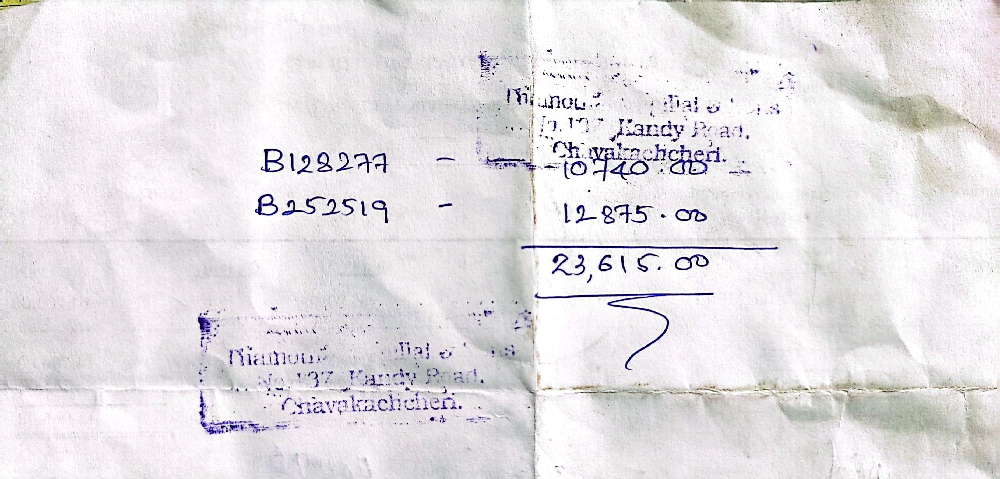 Kandy Road,
Chavakachcheri.
B128277 - 10740.00
B252519 - 12875.00
23,615.00
No. 137, Kandy Road,
Chavakachcheri.